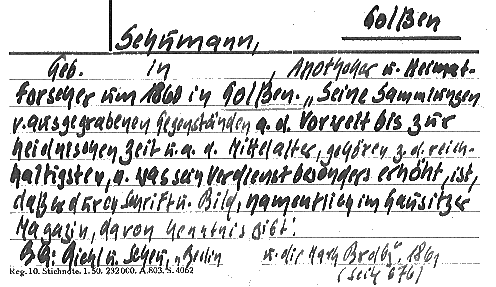 Golßen
Schumann,
Geb. in , Apotheker u. Heimat-
forscher um 1860 in Golßen. „Seine Sammlungen
v. ausgegrabenen Gegenständen a. d. Vorwelt bis zur
heidnischen Zeit u. a. d. Mittelalter, gehören z. d. reich-
haltigsten, u. was sein Verdienst besonders erhöht, ist,
daß er durch Schrift u. Bild, namentlich im Lausitzer
Magazin, davon Kenntnis gibt.
BG: Riehl u. Scheu, „Berlin u. die Mark Brdbg", 1861
Reg. 10. Stichnote. 1. 50. 232000. A. 803. S. 4062
(Seite 676)